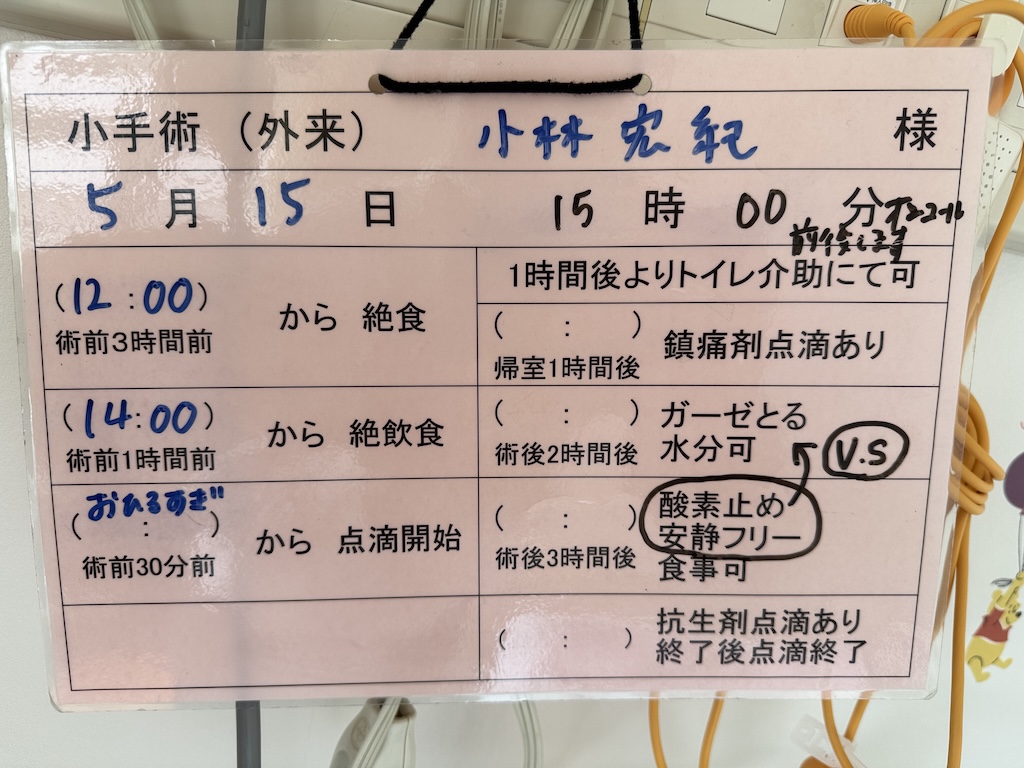 小手術（外来） 小林 宏紀 様
5月 15日 15時 00分オンコール
前後します
(12:00) から 絶食
術前3時間前
(14:00) から 絶飲食
術前1時間前
おひるすぎ
( : ) から 点滴開始
術前30分前
1時間後よりトイレ介助にて可
( : ) 鎮痛剤点滴あり
帰室1時間後
( : ) ガーゼとる
術後2時間後 水分可
V.S
( : ) 酸素止め
安静フリー
術後3時間後 食事可
( : ) 抗生剤点滴あり
終了後点滴終了